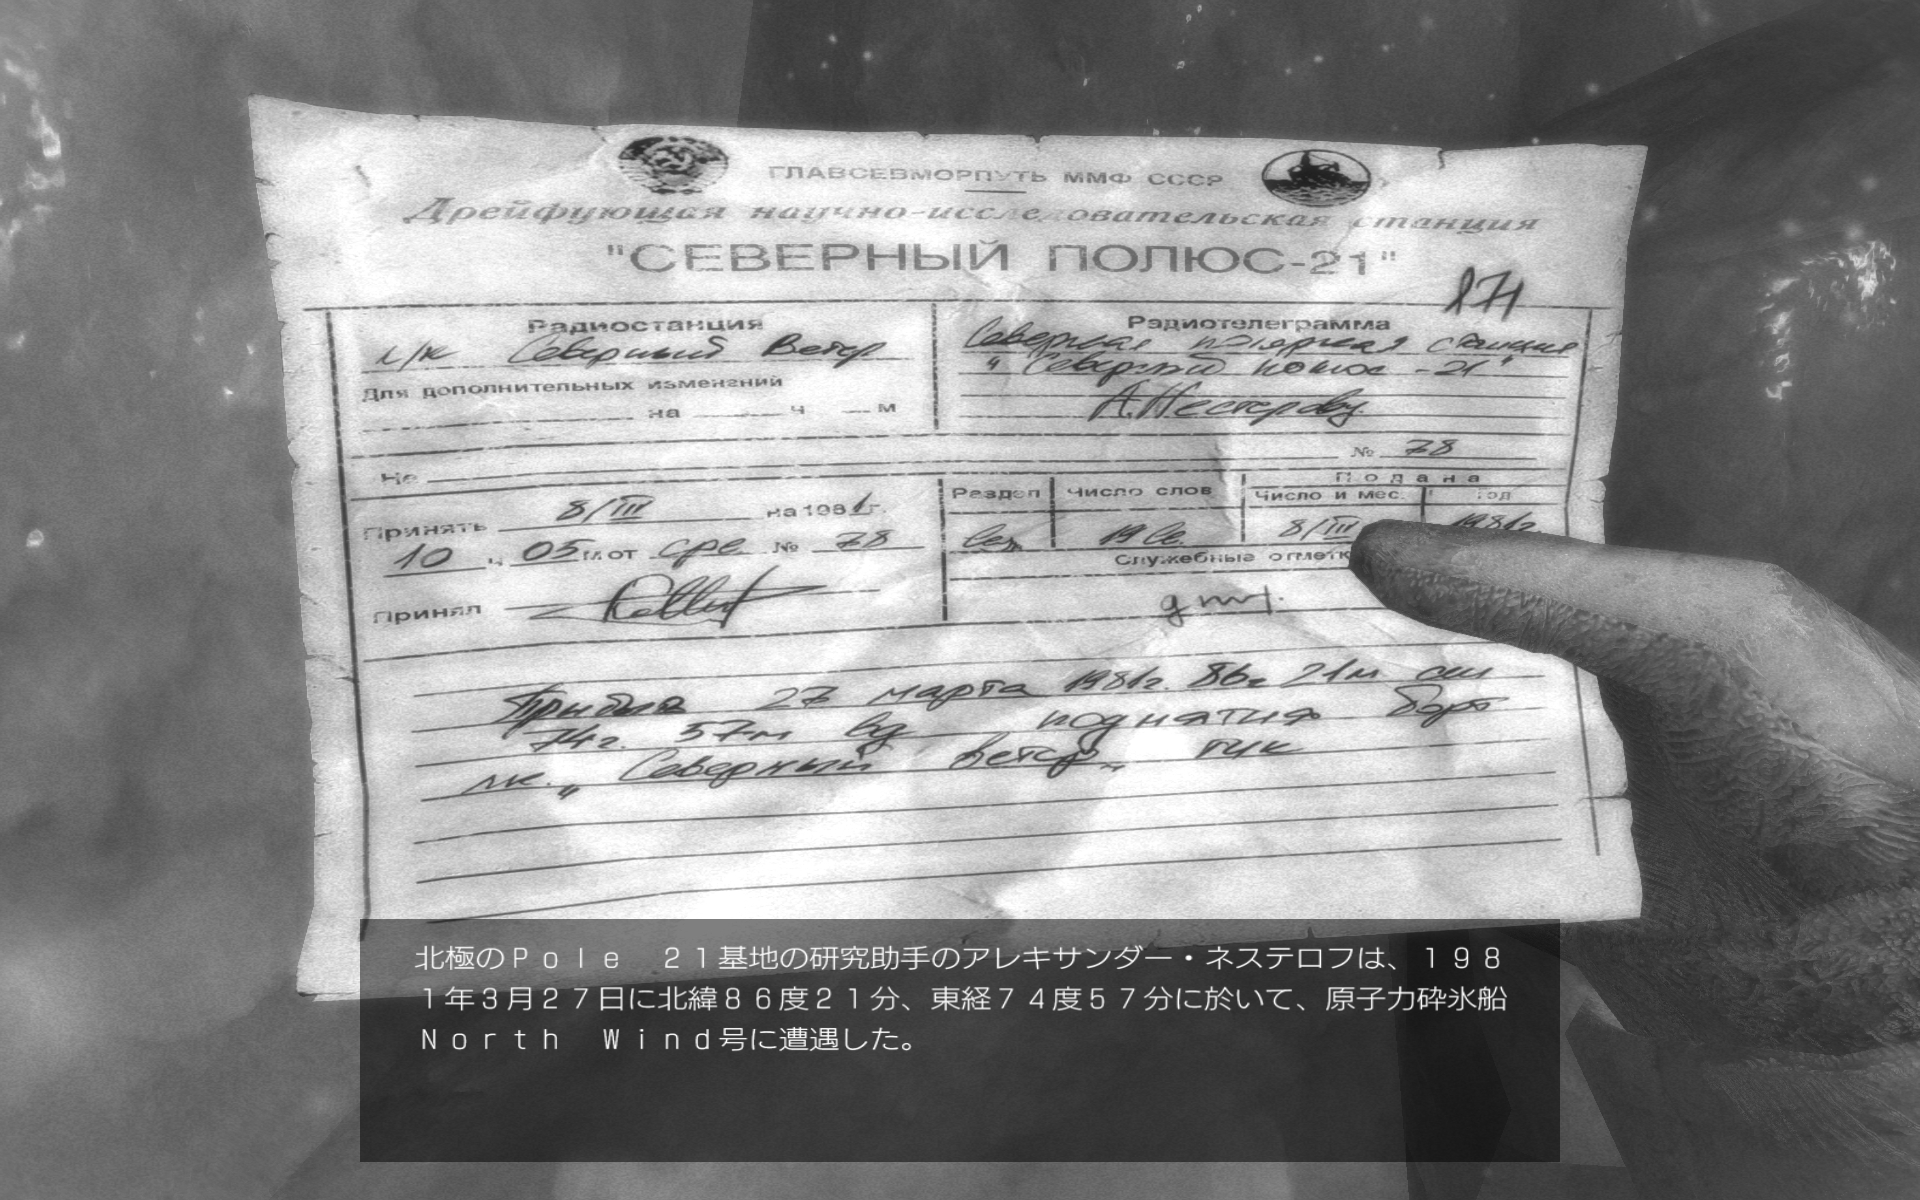 ГЛАВСЕВМОРПУТЬ ММФ СССР
Дрейфующая научно-исследовательская станция
"СЕВЕРНЫЙ ПОЛЮС-21"
871
Радиостанция
л/к Северный Ветер
Для дополнительных изменений
на ч м
Не
Радиотелеграмма
Северная полярная станция
"Северный полюс-21"
А.Нестерову
№ 78
Принять 8/III на 1981г.
10 ч 05 м от сре № 78
Принял
Раздел Число слов
Подана
Число и мес. год
19 8/III 1981г.
Служебные отметк
Прибыл 27 марта 1981г. 86г 21м сш
74г. 57м вд поднятия борт
лк. "Северный ветер"
北極のＰｏｌｅ　２１基地の研究助手のアレキサンダー・ネステロフは、１９８
１年３月２７日に北緯８６度２１分、東経７４度５７分に於いて、原子力砕氷船
Ｎｏｒｔｈ　Ｗｉｎｄ号に遭遇した。